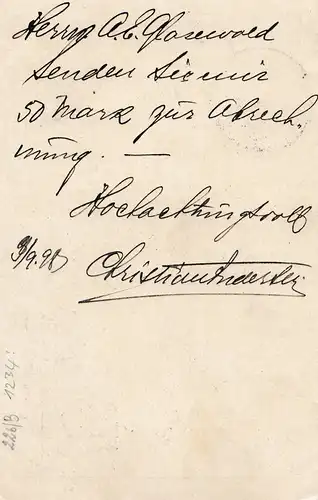 Herrn A. E. Glasewald
Senden Sie mir
50 Mark zur Abrech-
nung. —
Hochachtungsvoll
3/9.98
Christian
226/3 1234: